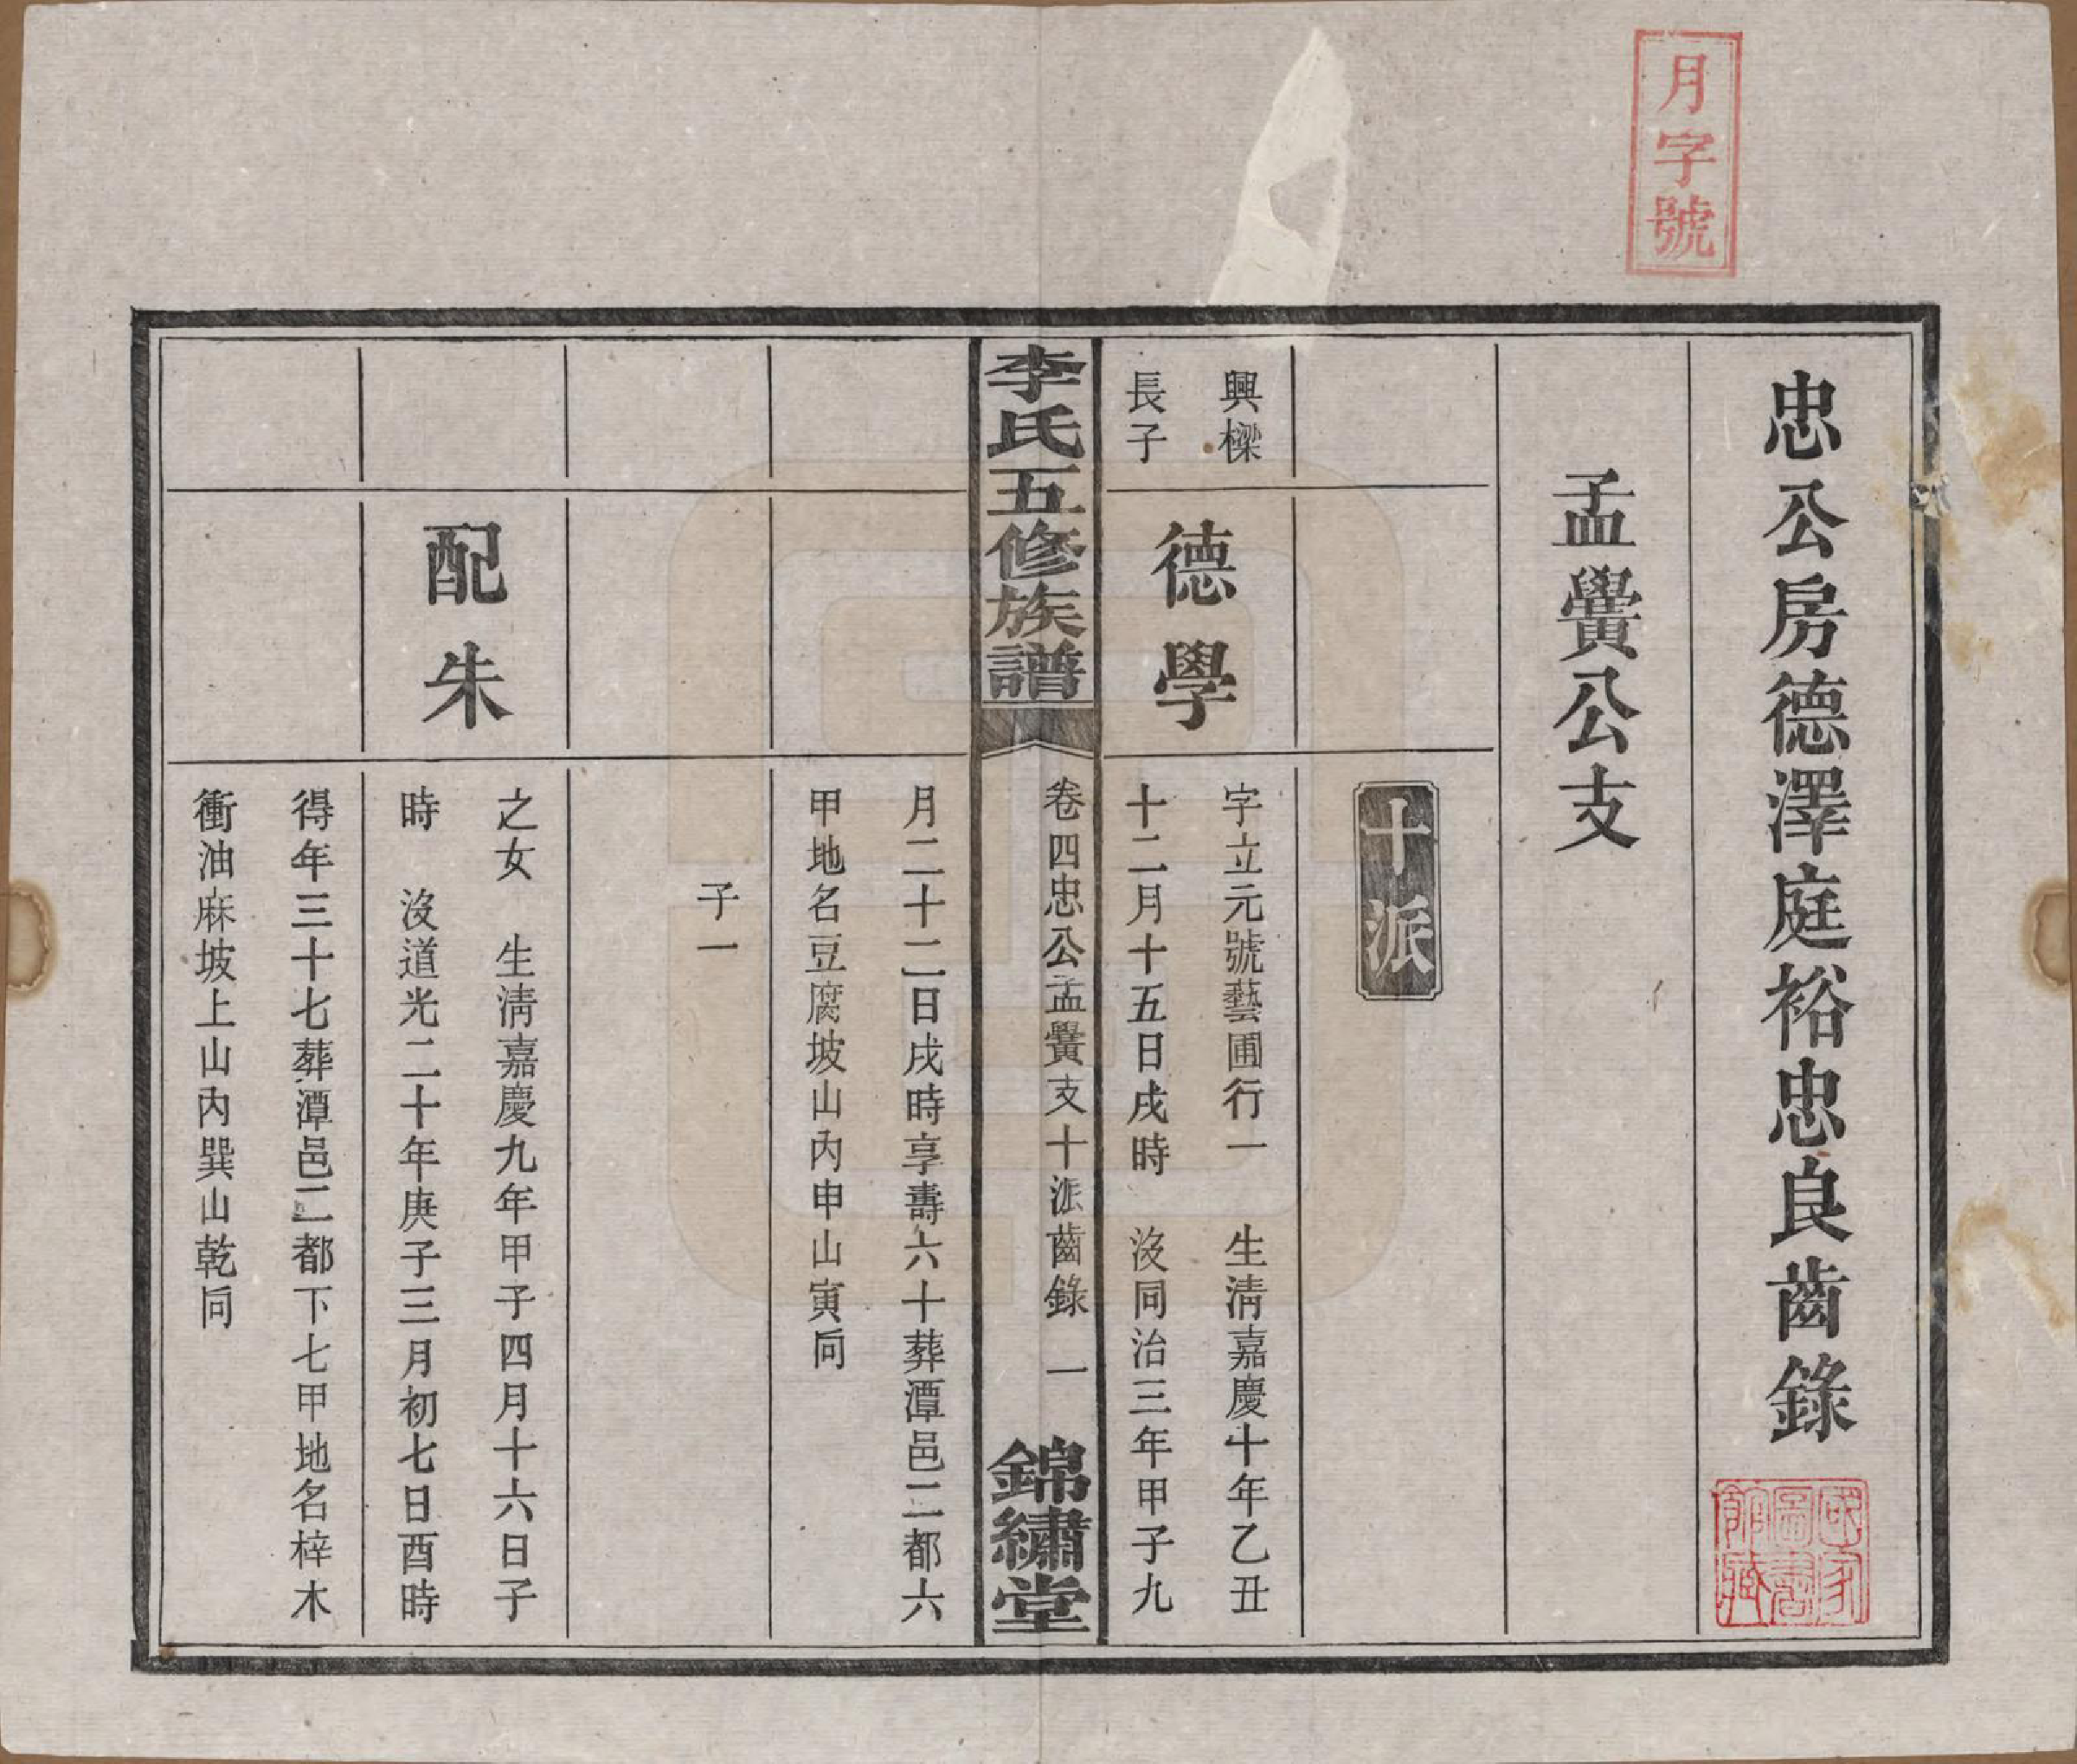 月字號
忠公房德澤庭裕忠良齒錄
國家圖書館藏
孟黌公支
十派
興樑
長子
德學
字立元號藝圃行一　生淸嘉慶十年乙丑
十二月十五日戌時　沒同治三年甲子九
李氏五修族譜
卷四忠公孟黌支十派齒錄　一
錦繡堂
月二十二日戌時享壽六十葬潭邑二都六
甲地名豆腐坡山內申山寅向
子一
配朱
之女　生淸嘉慶九年甲子四月十六日子
時　沒道光二十年庚子三月初七日酉時
得年三十七葬潭邑二都下七甲地名梓木
衝油麻坡上山內巽山乾向